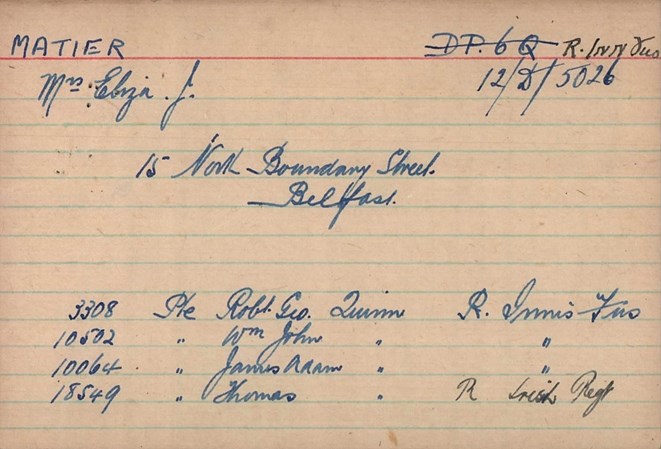 MATIER DP. 6 Q R. Inn Fus
Mrs Eliza. J. 12/D/5026
15 North Boundary Street.
Belfast.
3308 Pte Robt. Geo. Quinn R. Innis Fus
10502 " Wm John " "
10064 " James Adam " "
18549 " Thomas " R Irish Regt